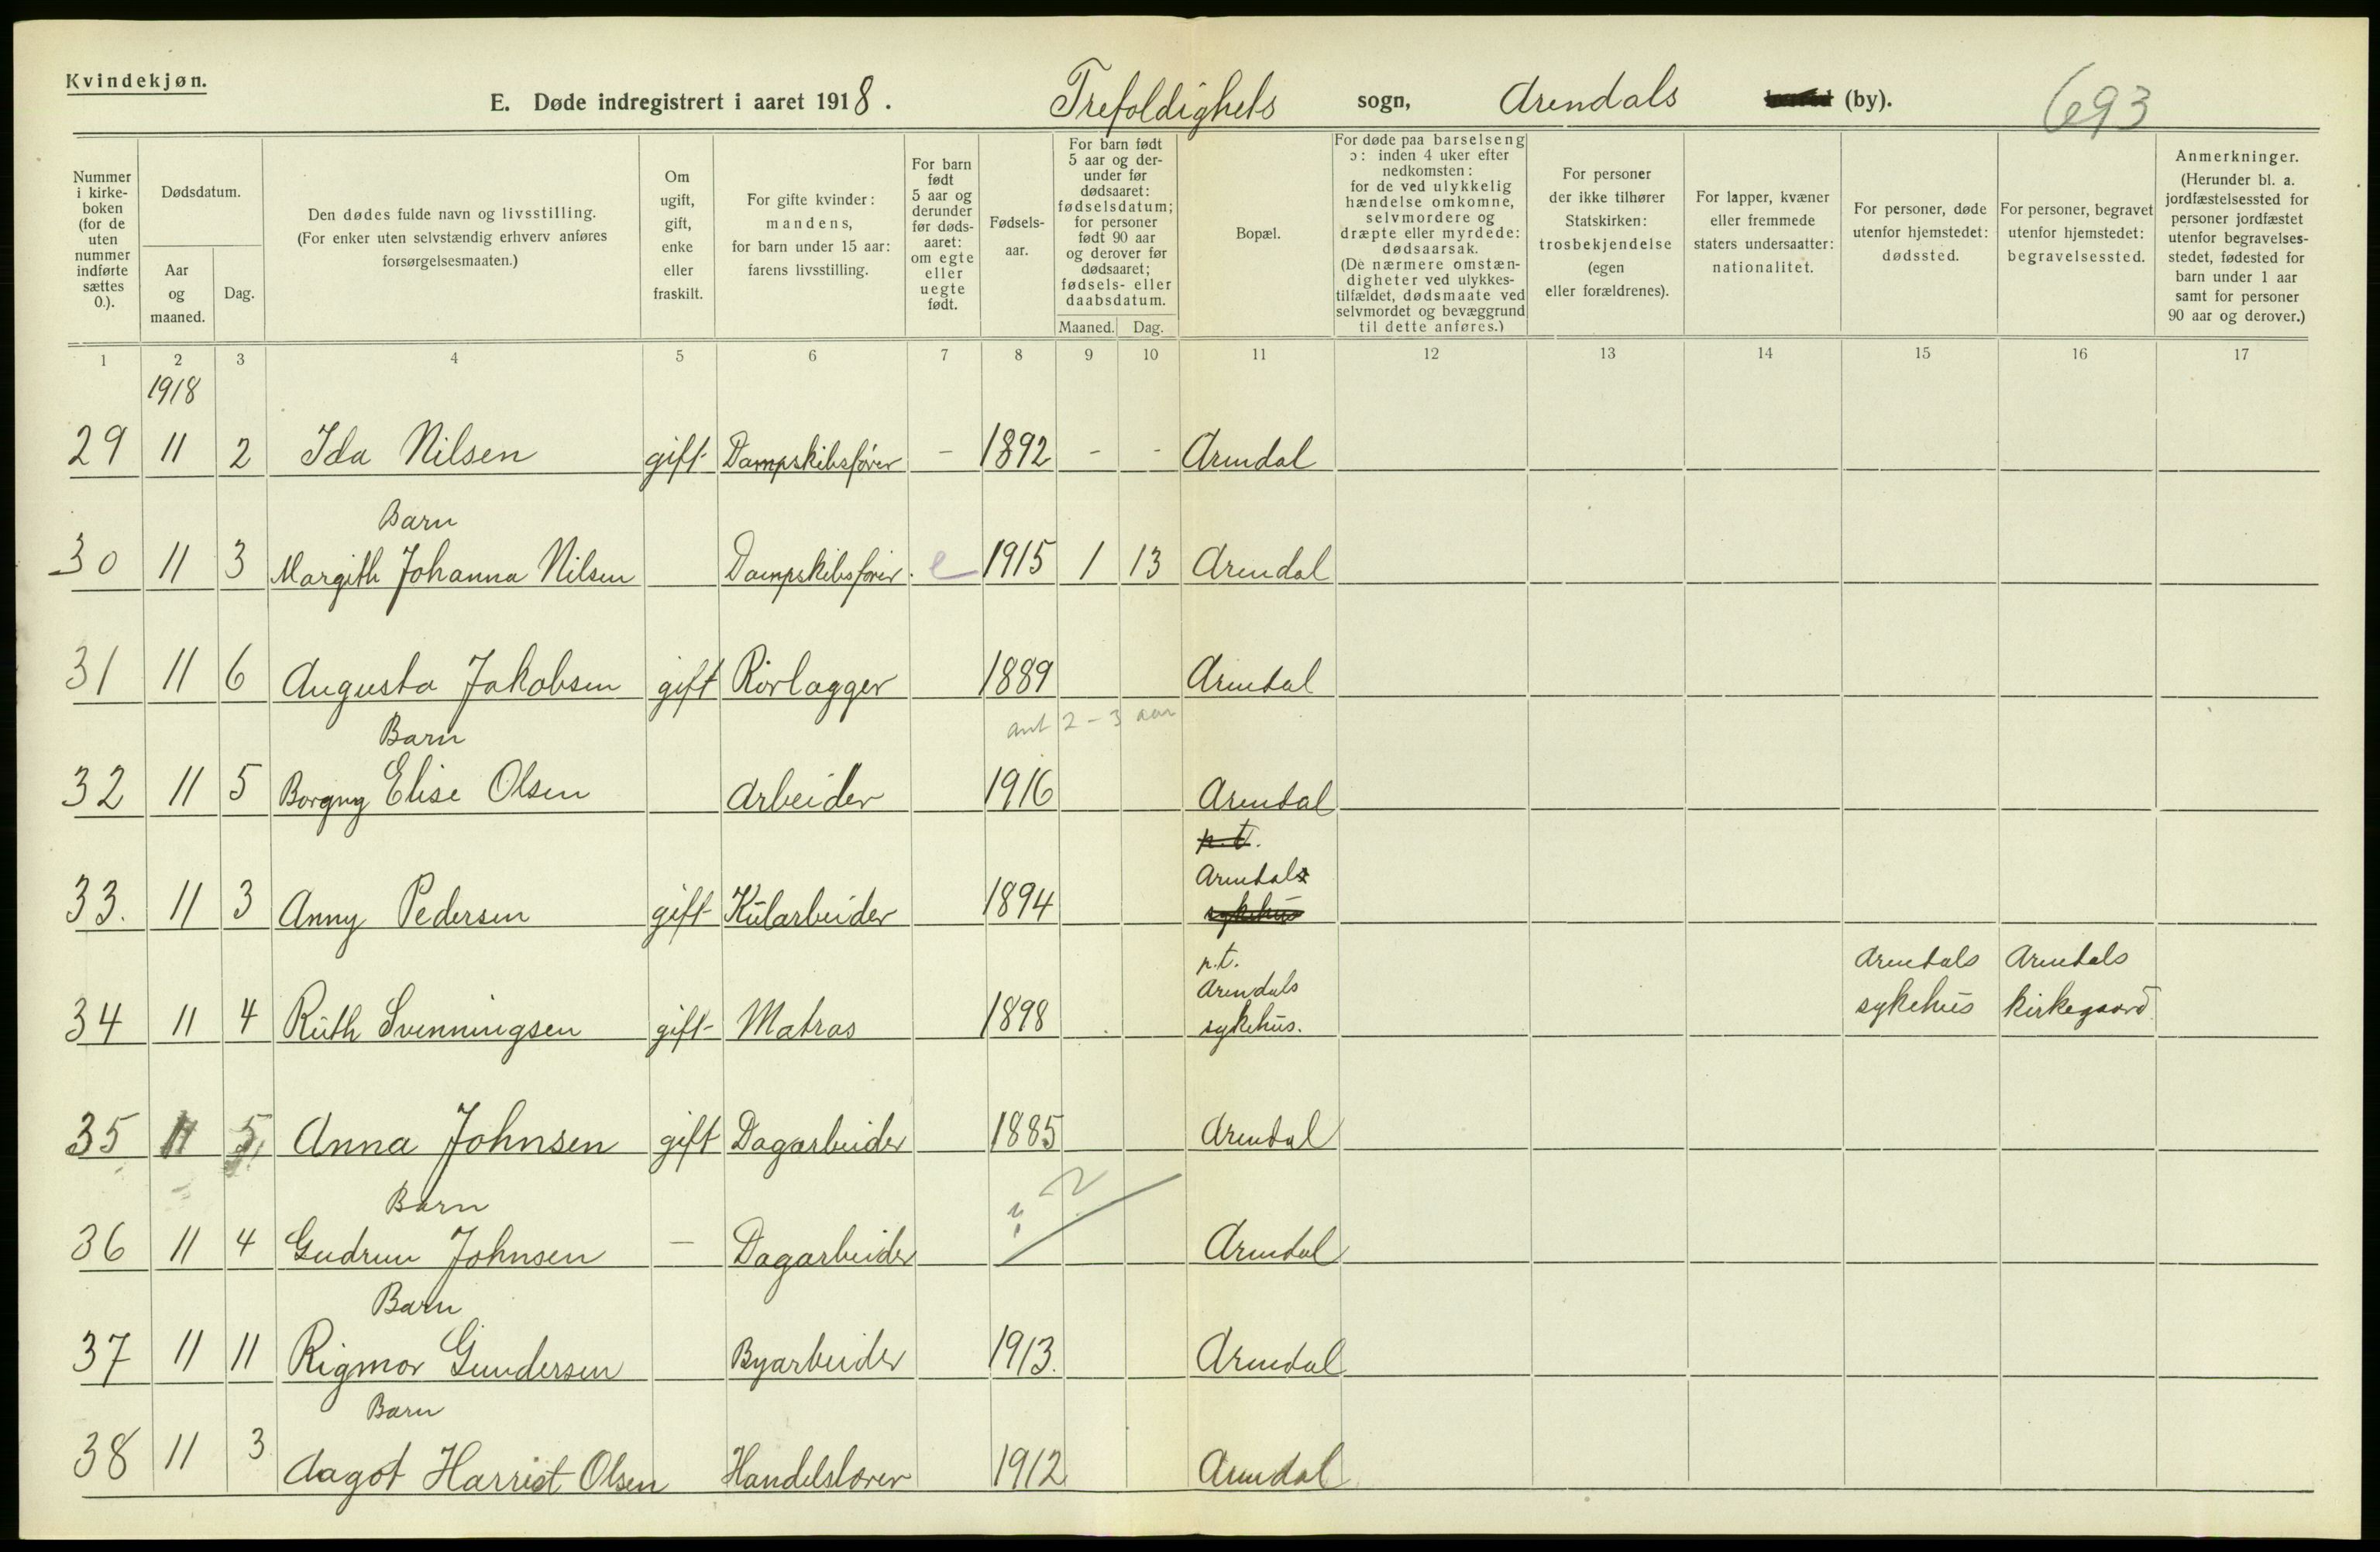 Kvindekjøn.
E. Døde indregistrert i aaret 1918. Trefoldighets sogn, Arendals (by). 693
Nummer i kirkeboken (for de uten nummer indførte sættes 0.).
Dødsdatum.
Aar og maaned.
Dag.
Den dødes fulde navn og livsstilling. (For enker uten selvstændig erhverv anføres forsørgelsesmaaten.)
Om ugift, gift, enke eller fraskilt.
For gifte kvinder: mandens, for barn under 15 aar: farens livsstilling.
For barn født 5 aar og derunder før dødsaaret: om egte eller uegte født.
Fødselsaar.
For barn født 5 aar og derunder før dødsaaret: fødselsdatum; for personer født 90 aar og derover før dødsaaret; fødsels- eller daabsdatum.
Maaned. Dag.
Bopæl.
For døde paa barselseng ɔ: inden 4 uker efter nedkomsten: for de ved ulykkelig hændelse omkomne, selvmordere og dræpte eller myrdede: dødsaarsak. (De nærmere omstændigheter ved ulykkestilfældet, dødsmaate ved selvmordet og bevæggrund til dette anføres.)
For personer der ikke tilhører Statskirken: trosbekjendelse (egen eller forældrenes).
For lapper, kvæner eller fremmede staters undersaatter: nationalitet.
For personer, døde utenfor hjemstedet: dødssted.
For personer, begravet utenfor hjemstedet: begravelsessted.
Anmerkninger. (Herunder bl. a. jordfæstelsessted for personer jordfæstet utenfor begravelsesstedet, fødested for barn under 1 aar samt for personer 90 aar og derover.)
1 2 3 4 5 6 7 8 9 10 11 12 13 14 15 16 17
1918
29 11 2 Ida Nilsen gift Dampskibsfører - 1892 - - Arendal
Barn
30 11 3 Margith Johanna Nilsen Dampskibsfører. e 1915 1 13 Arendal
31 11 6 Augusta Jakobsen gift Rörlagger 1889 Arendal
Barn ant 2-3 aar
32 11 5 Borgny Elise Olsen Arbeider 1916 Arendal
p.t.
Arendals
33. 11 3 Anny Pedersen gift Kularbeider 1894 sykehus
p.t. Arendals Arendals
Arendals
34 11 4 Ruth Svenningsen gift Matros 1898 sykehus. sykehus kirkegaard
35 11 5 Anna Johnsen gift Dagarbeider 1885 Arendal
Barn
36 11 4 Gudrun Johnsen — Dagarbeider Arendal
Barn
37 11 11 Rigmor Gundersen Byarbeider 1913. Arendal
Barn
38 11 3 Aagot Harriet Olsen Handelslærer 1912 Arendal